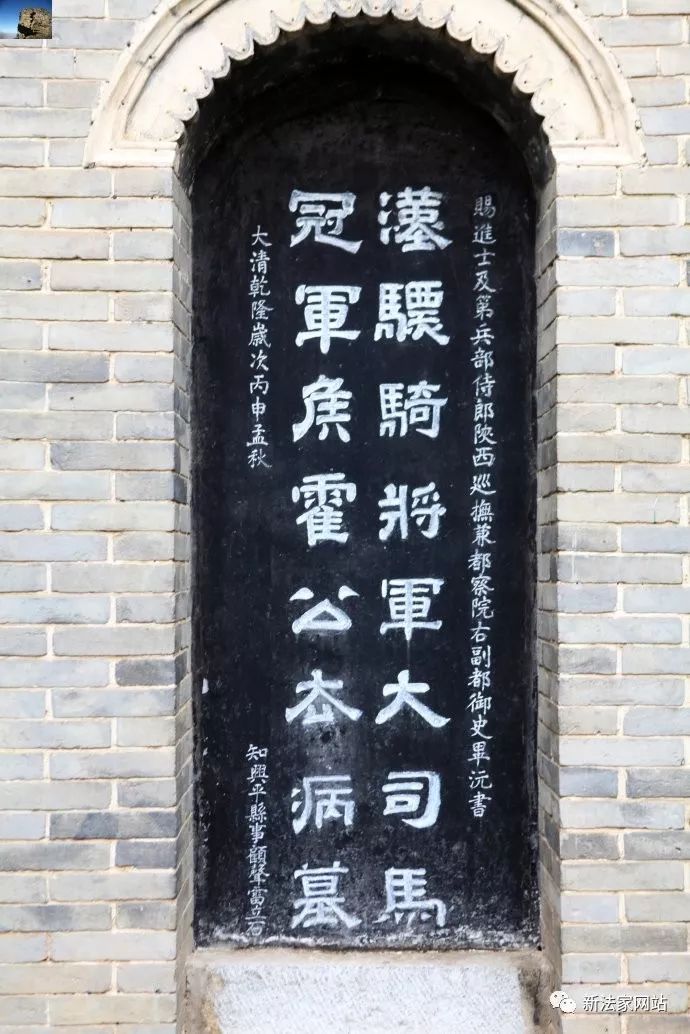 賜進士及第兵部侍郎陝西巡撫兼都察院右副都御史畢沅書
漢驃騎將軍大司馬
冠軍侯霍公去病墓
大清乾隆歲次丙申孟秋
知興平縣事顧聲雷立石
新法家网站